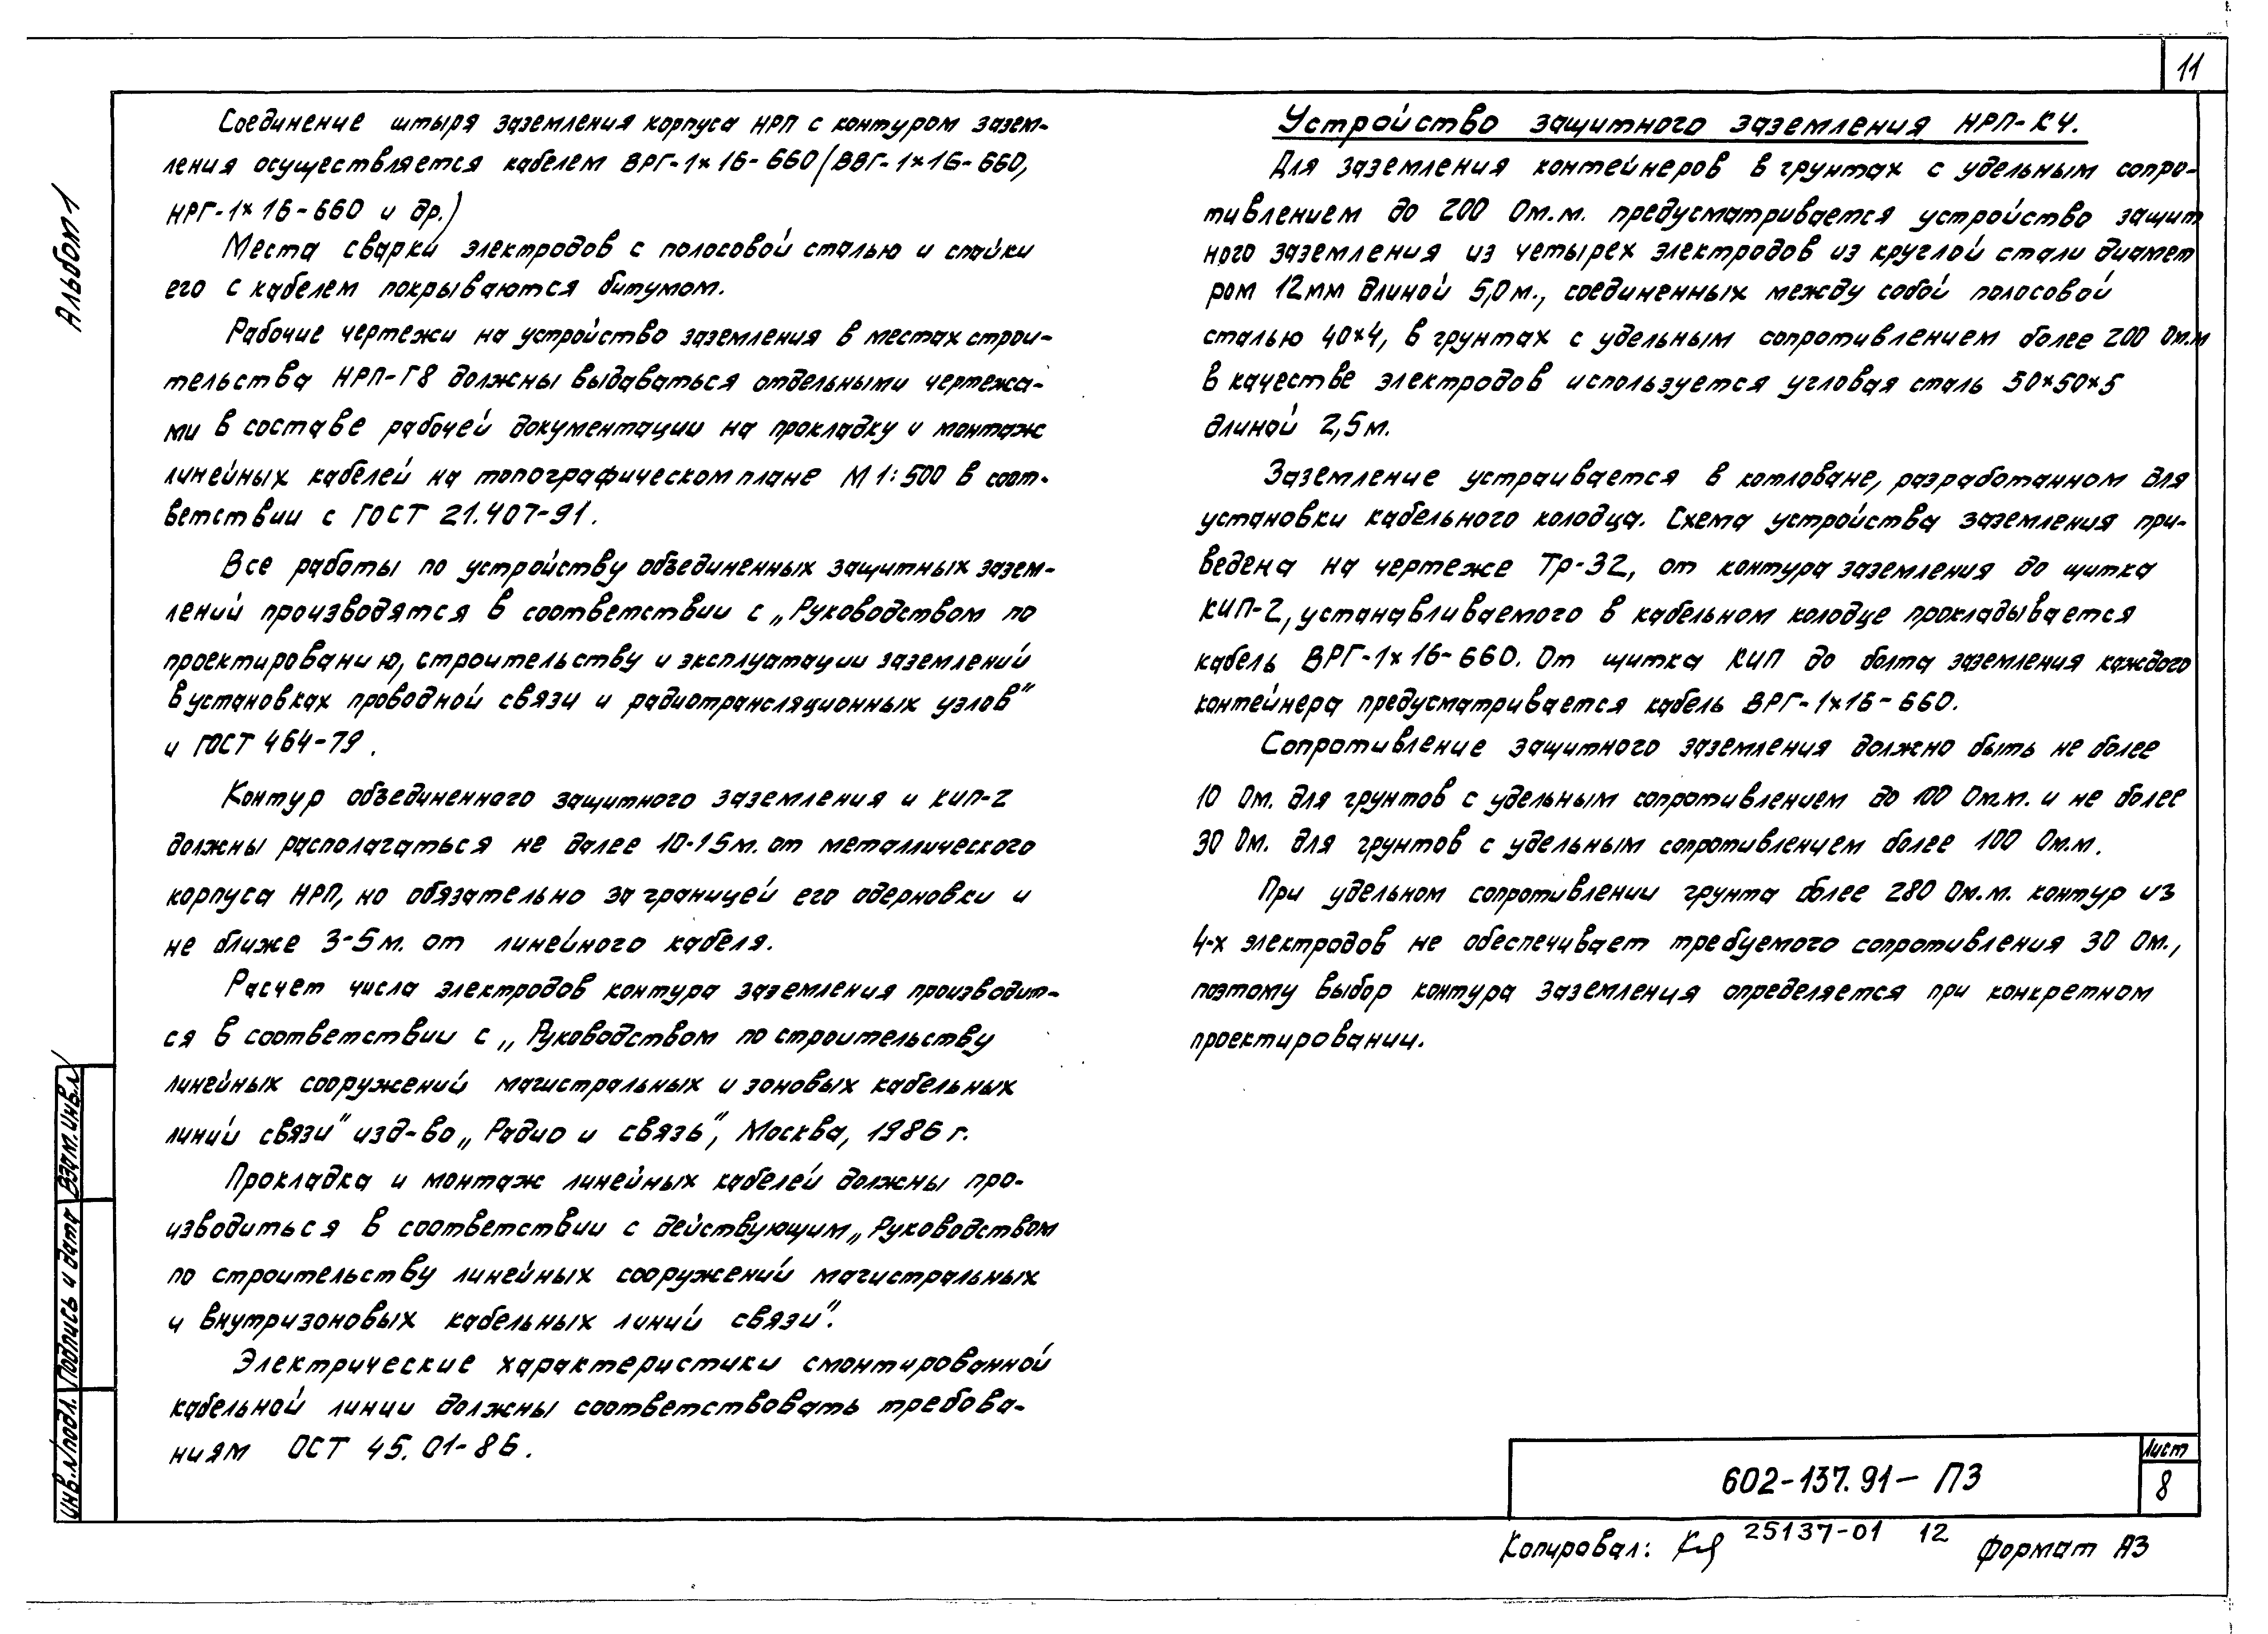 11
Альбом 1
Соединение штыря заземления корпуса НРП с контуром зазем-
ления осуществляется кабелем ВРГ-1×16-660 (ВВГ-1×16-660,
НРГ-1×16-660 и др.)
Места сварки электродов с полосовой сталью и спайки
его с кабелем покрываются битумом.
Рабочие чертежи на устройство заземления в местах строи-
тельства НРП-Г8 должны выдаваться отдельными чертежа-
ми в составе рабочей документации на прокладку и монтаж
линейных кабелей на топографическом плане М 1:500 в соот-
ветствии с ГОСТ 21.407-91.
Все работы по устройству объединенных защитных зазем-
лений производятся в соответствии с „Руководством по
проектированию, строительству и эксплуатации заземлений
в установках проводной связи и радиотрансляционных узлов"
и ГОСТ 464-79.
Контур объединенного защитного заземления и КИП-2
должны располагаться не далее 10-15м. от металлического
корпуса НРП, но обязательно за границей его одерновки и
не ближе 3-5м. от линейного кабеля.
Расчет числа электродов контура заземления производит-
ся в соответствии с „Руководством по строительству
линейных сооружений магистральных и зоновых кабельных
линий связи" изд-во „Радио и связь", Москва, 1986 г.
Прокладка и монтаж линейных кабелей должны про-
изводиться в соответствии с действующим „Руководством
по строительству линейных сооружений магистральных
и внутризоновых кабельных линий связи".
Электрические характеристики смонтированной
кабельной линии должны соответствовать требова-
ниям ОСТ 45.01-86.
Устройство защитного заземления НРП-К4.
Для заземления контейнеров в грунтах с удельным сопро-
тивлением до 200 Ом.м. предусматривается устройство защит
ного заземления из четырех электродов из круглой стали диамет
ром 12мм длиной 5,0м., соединенных между собой полосовой
сталью 40×4, в грунтах с удельным сопротивлением более 200 Ом.м
в качестве электродов используется угловая сталь 50×50×5
длиной 2,5м.
Заземление устраивается в котловане, разработанном для
установки кабельного колодца. Схема устройства заземления при-
ведена на чертеже Тр-32, от контура заземления до щитка
КИП-2, устанавливаемого в кабельном колодце прокладывается
кабель ВРГ-1×16-660. От щитка КИП до болта заземления каждого
контейнера предусматривается кабель ВРГ-1×16-660.
Сопротивление защитного заземления должно быть не более
10 Ом. для грунтов с удельным сопротивлением до 100 Ом.м. и не более
30 Ом. для грунтов с удельным сопротивлением более 100 Ом.м.
При удельном сопротивлении грунта более 280 Ом.м. контур из
4-х электродов не обеспечивает требуемого сопротивления 30 Ом.,
поэтому выбор контура заземления определяется при конкретном
проектировании.
Взам. инв. №
Подпись и дата
Инв. № подл.
602-137.91-ПЗ
Лист
8
Копировал:
25137-01 12
Формат А3